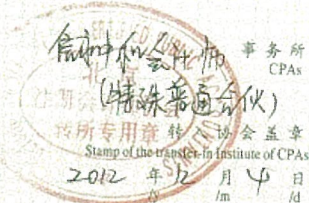 信永中和会计师 事务所
CPAs
(特殊普通合伙)
转所专用章 转入协会盖章
Stamp of the transfer-in Institute of CPAs
2012 年 12 月 4 日
/y /m /d